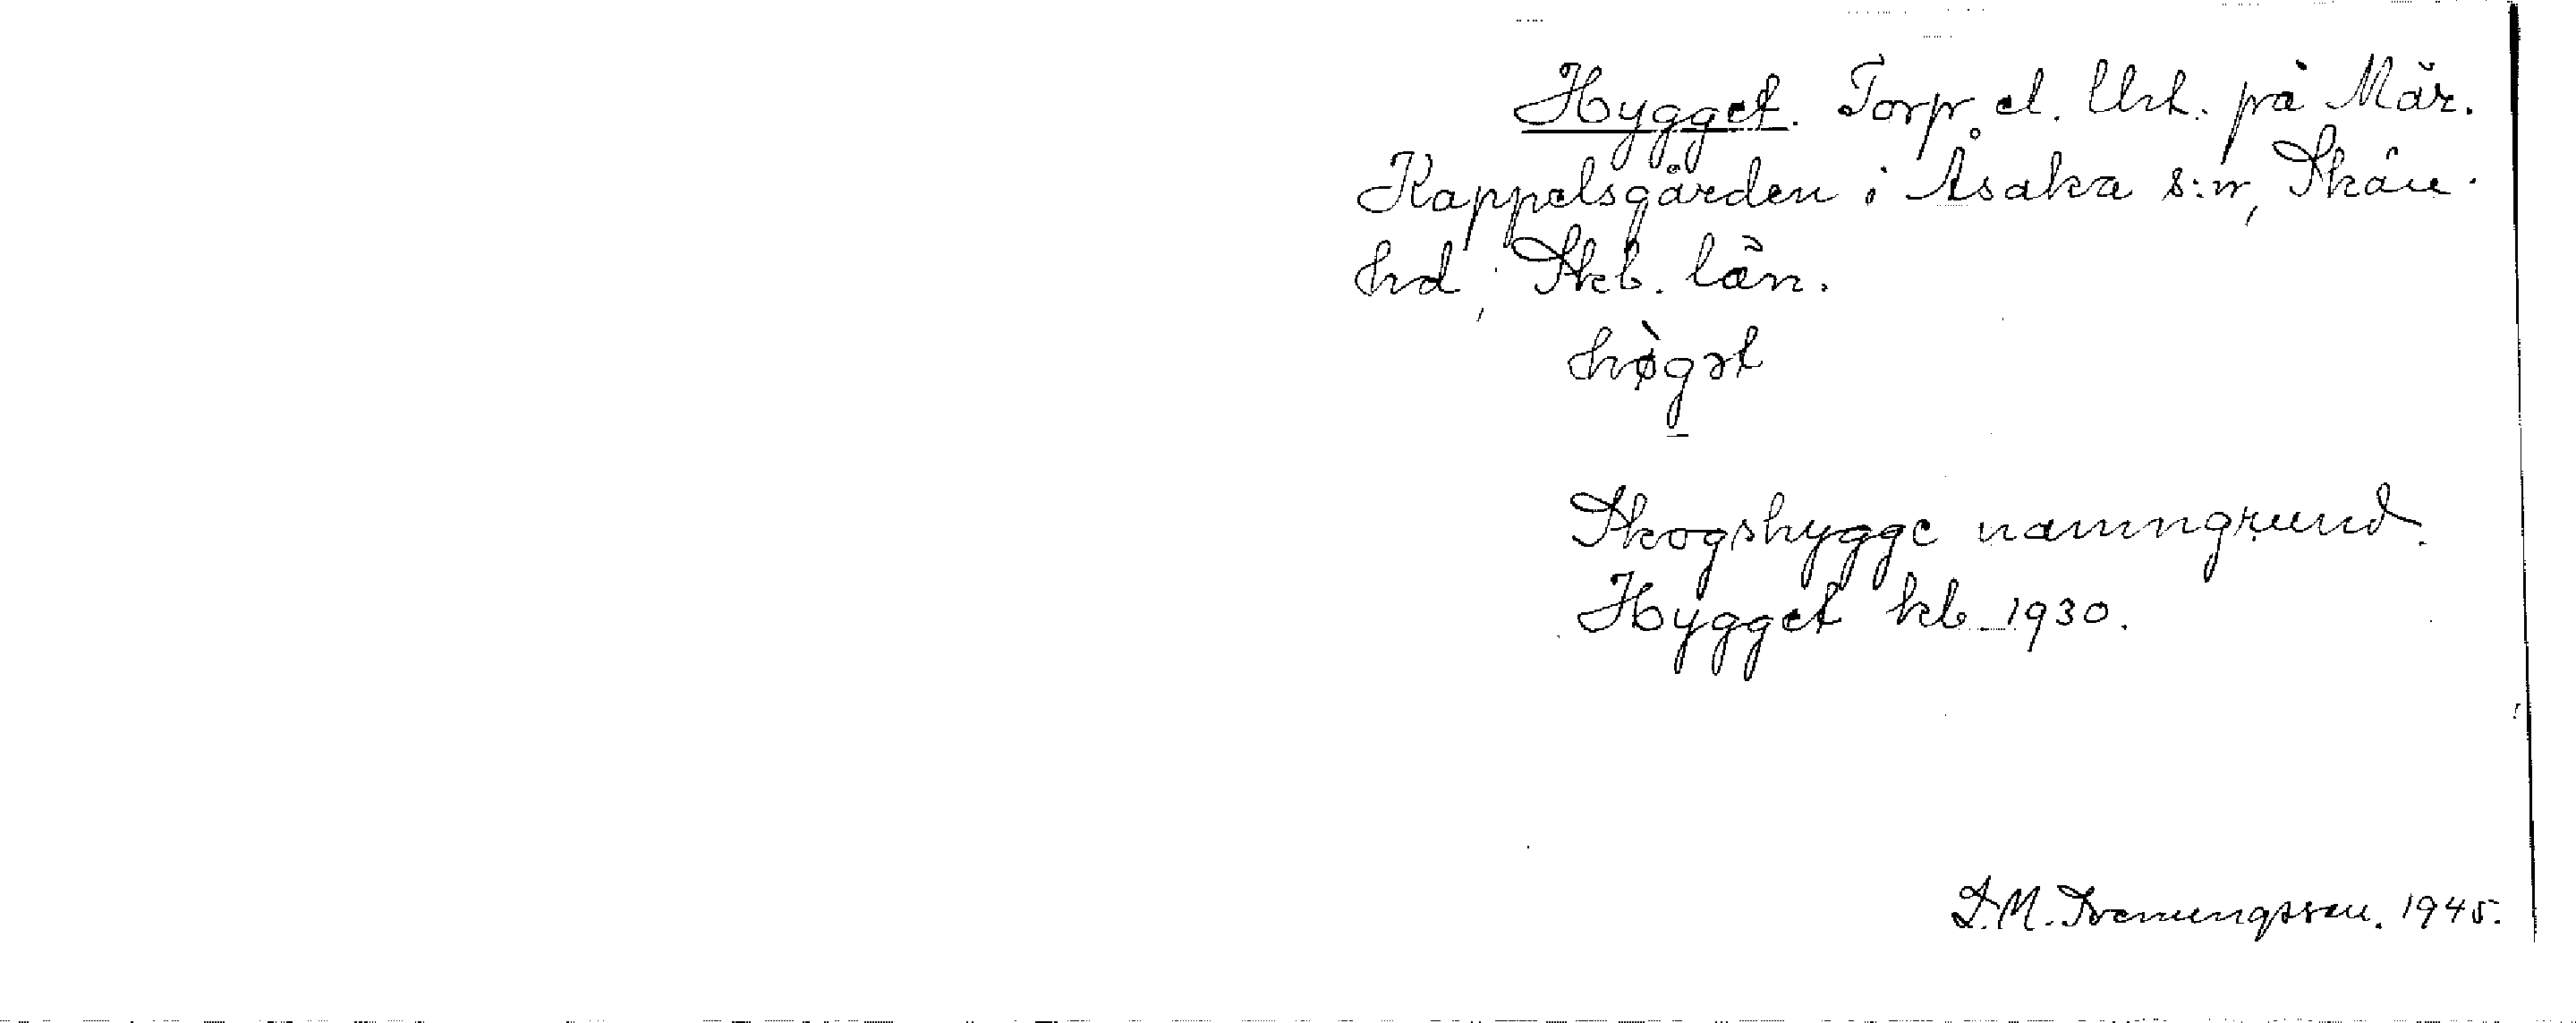 Hygget. Torp el. Ust. på Mär.
Kappelsgården i Åsaka s:n, Skån.
hd, Skb. län.
hø̀gət
Skogshygge namngrund.
Hygget kb 1930.
D.M. Svenungsson. 1945.